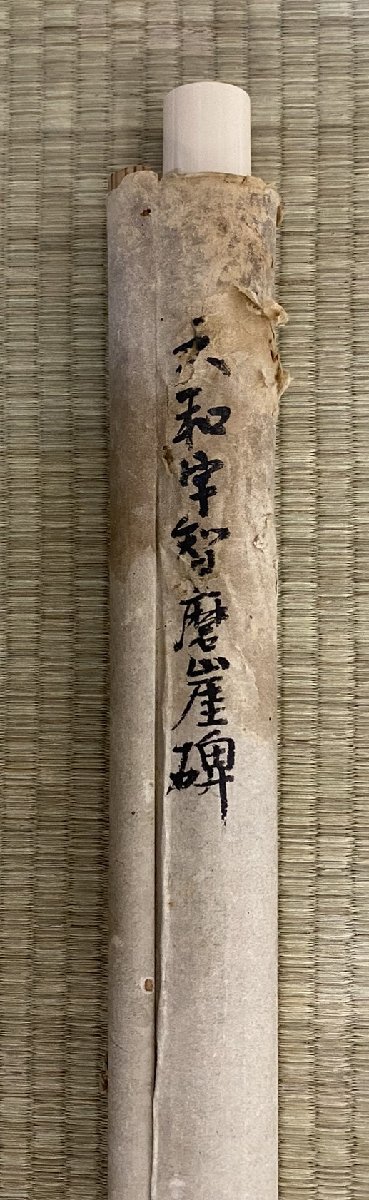 大和宇智磨崖碑